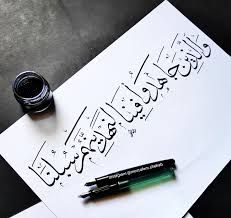 وَالَّذِينَ جَٰهَدُوا فِينَا لَنَهْدِيَنَّهُمْ سُبُلَنَا